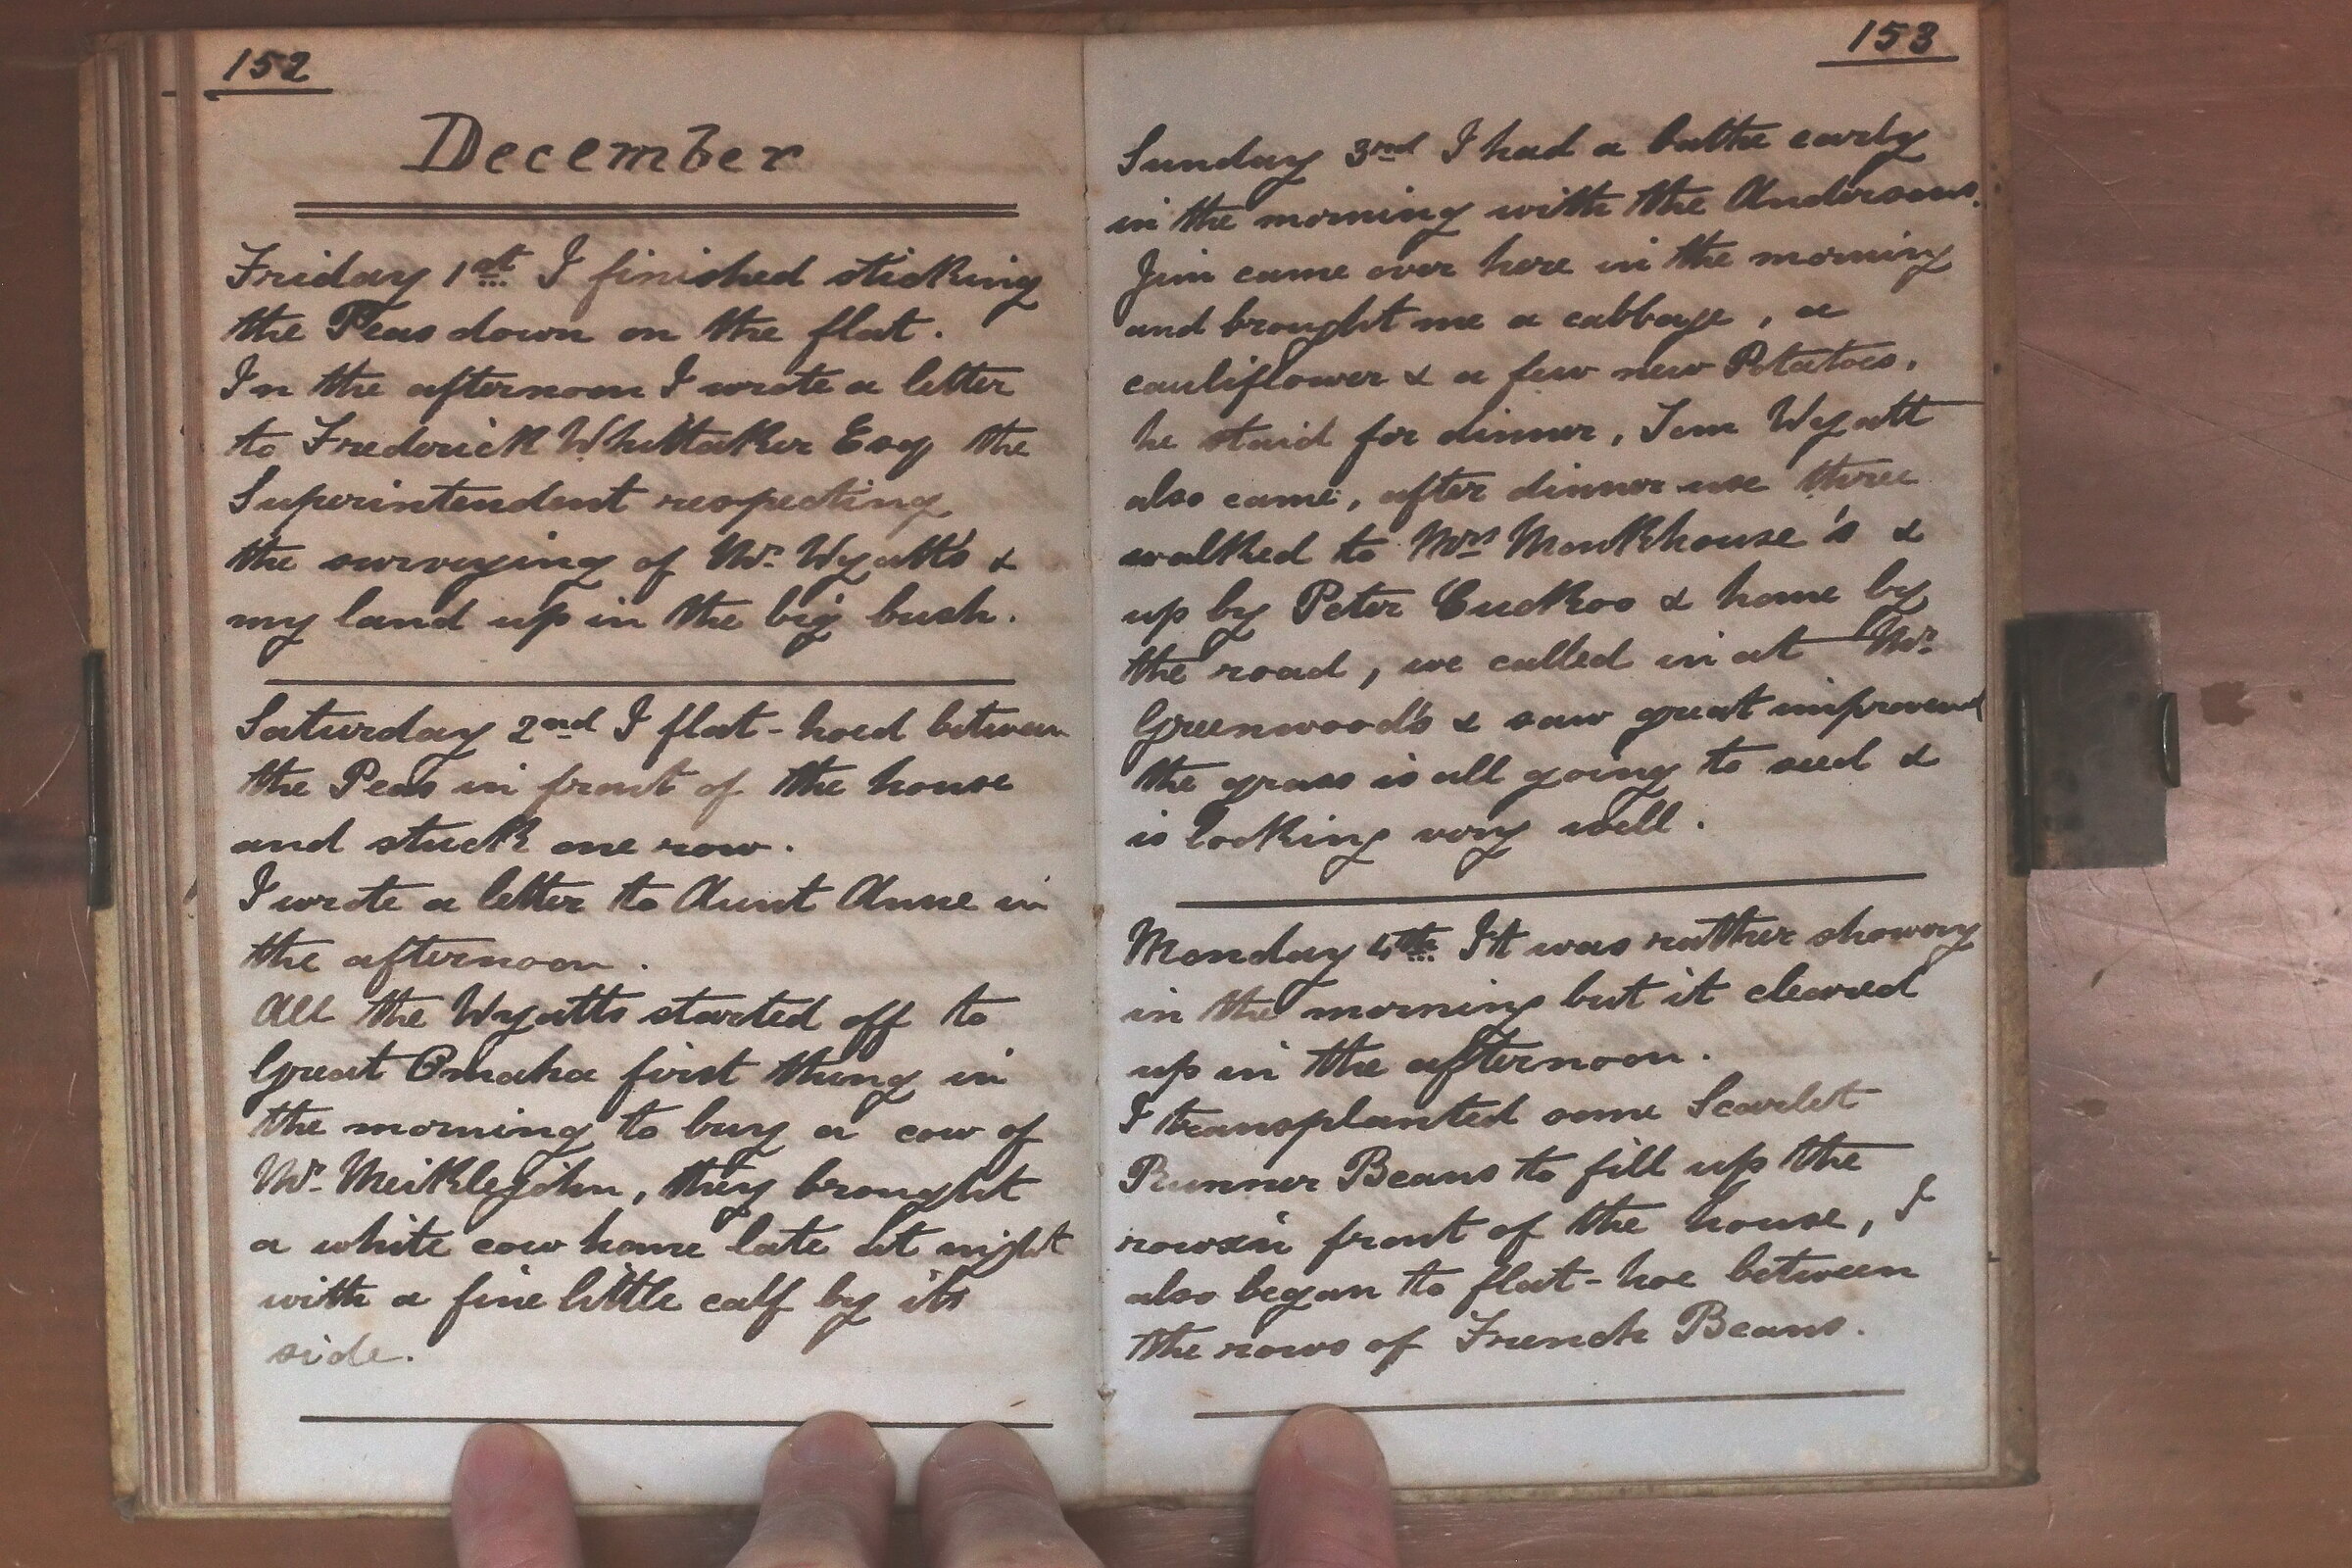 152
December
Friday 1st I finished sticking
the Peas down on the flat.
In the afternoon I wrote a letter
to Frederick Whittaker Esq the
Superintendent respecting
the surveying of Mr. Wyatt's &
my land up in the big bush.
Saturday 2nd I flat-hoed between
the Peas in front of the house
and stuck one row.
I wrote a letter to Aunt Anne in
the afternoon.
All the Wyatts started off to
Great Omaha first thing in
the morning to buy a cow of
Mr. Meiklejohn, they brought
a white cow home late at night
with a fine little calf by its
side.
153
Sunday 3rd I had a bathe early
in the morning with the Andersons.
Jim came over here in the morning
and brought me a cabbage, a
cauliflower & a few new Potatoes.
he staid for dinner, Tom Wyatt
also came, after dinner we three
walked to Mrs Monkhouse's &
up by Peter Cuckoo & home by
the road, we called in at Mr.
Greenwood's & saw great improvemt
the grass is all going to seed &
is looking very well.
Monday 4th It was rather showery
in the morning but it cleared
up in the afternoon.
I transplanted some Scarlet
Runner Beans to fill up the
rows in front of the house, I
also began to flat-hoe between
the rows of French Beans.